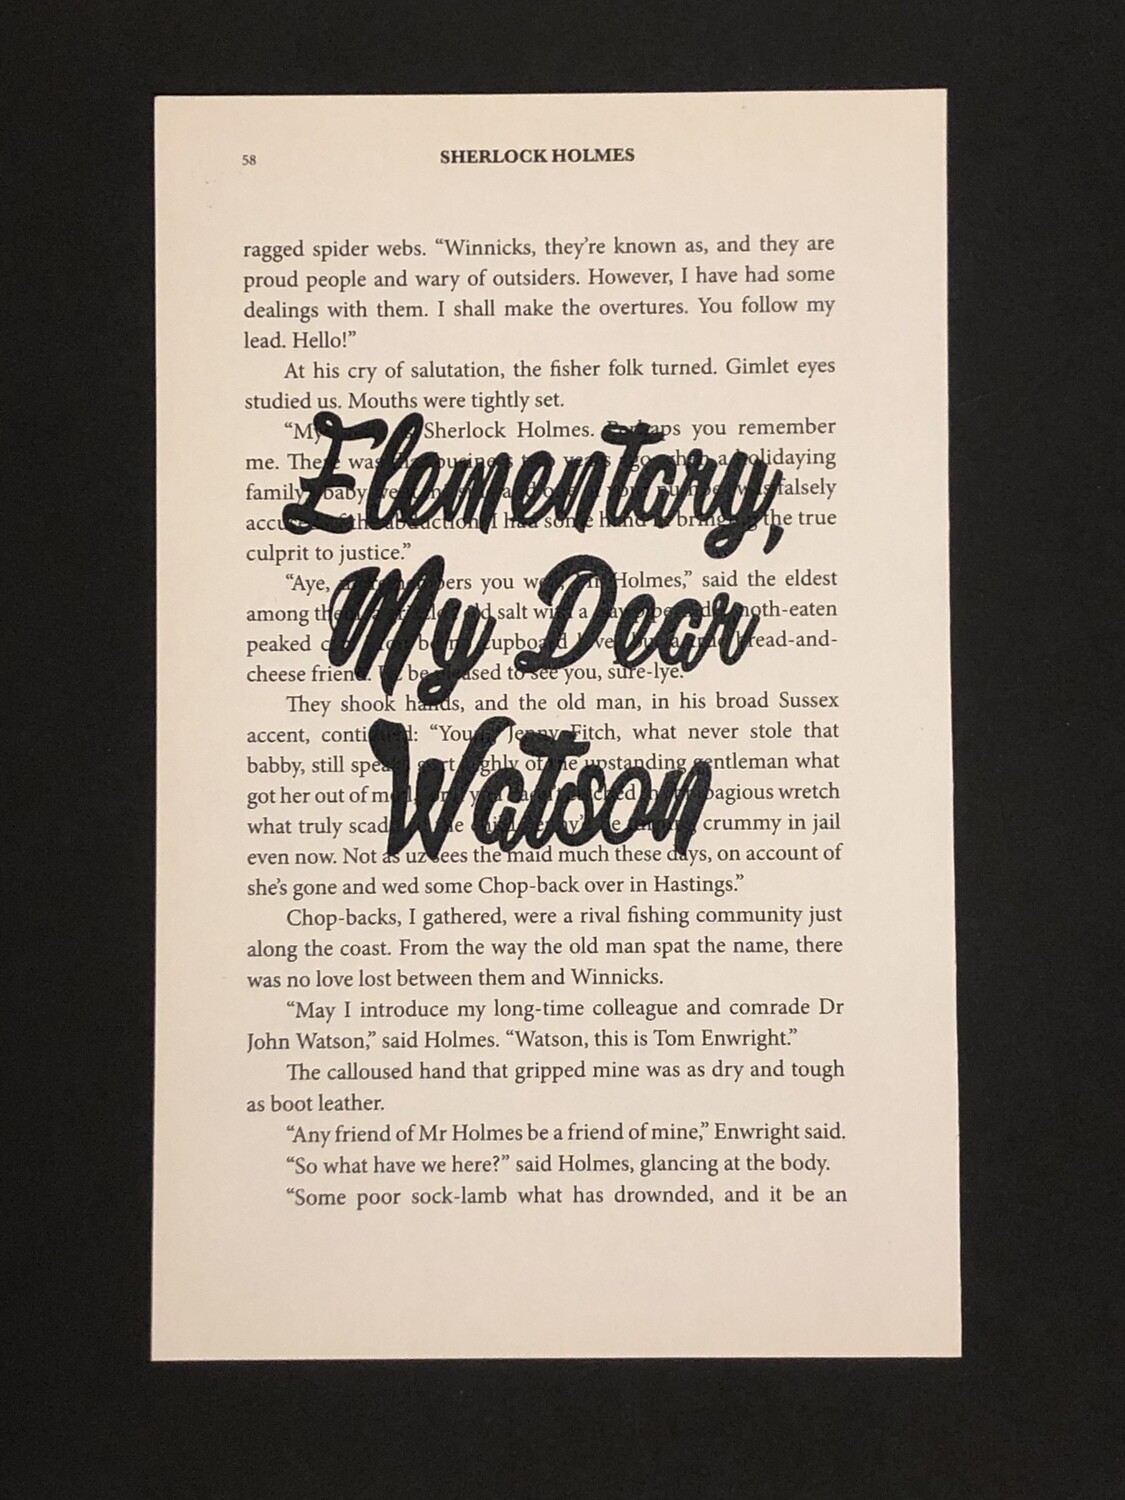 58
SHERLOCK HOLMES
ragged spider webs. “Winnicks, they’re known as, and they are
proud people and wary of outsiders. However, I have had some
dealings with them. I shall make the overtures. You follow my
lead. Hello!”
At his cry of salutation, the fisher folk turned. Gimlet eyes
studied us. Mouths were tightly set.
“My Sherlock Holmes. Perhaps you remember
me. There was this business two years ago when a holidaying
family’s baby went and one of your number was falsely
accused of the abduction. I had some hand in bringing the true
culprit to justice.”
“Aye, remembers you well, Mr Holmes,” said the eldest
among them, a grizzled old salt with a clay pipe and moth-eaten
peaked cap. be no cupboard love, but a true bread-and-
cheese friend. I’d be pleased to see you, sure-lye.”
They shook hands, and the old man, in his broad Sussex
accent, continued: “Young Jenny Fitch, what never stole that
babby, still speaks of the upstanding gentleman what
got her out of wretch
what truly crummy in jail
even now. Not as uz sees the maid much these days, on account of
she’s gone and wed some Chop-back over in Hastings.”
Chop-backs, I gathered, were a rival fishing community just
along the coast. From the way the old man spat the name, there
was no love lost between them and Winnicks.
“May I introduce my long-time colleague and comrade Dr
John Watson,” said Holmes. “Watson, this is Tom Enwright.”
The calloused hand that gripped mine was as dry and tough
as boot leather.
“Any friend of Mr Holmes be a friend of mine,” Enwright said.
“So what have we here?” said Holmes, glancing at the body.
“Some poor sock-lamb what has drownded, and it be an
Elementary,
My Dear
Watson